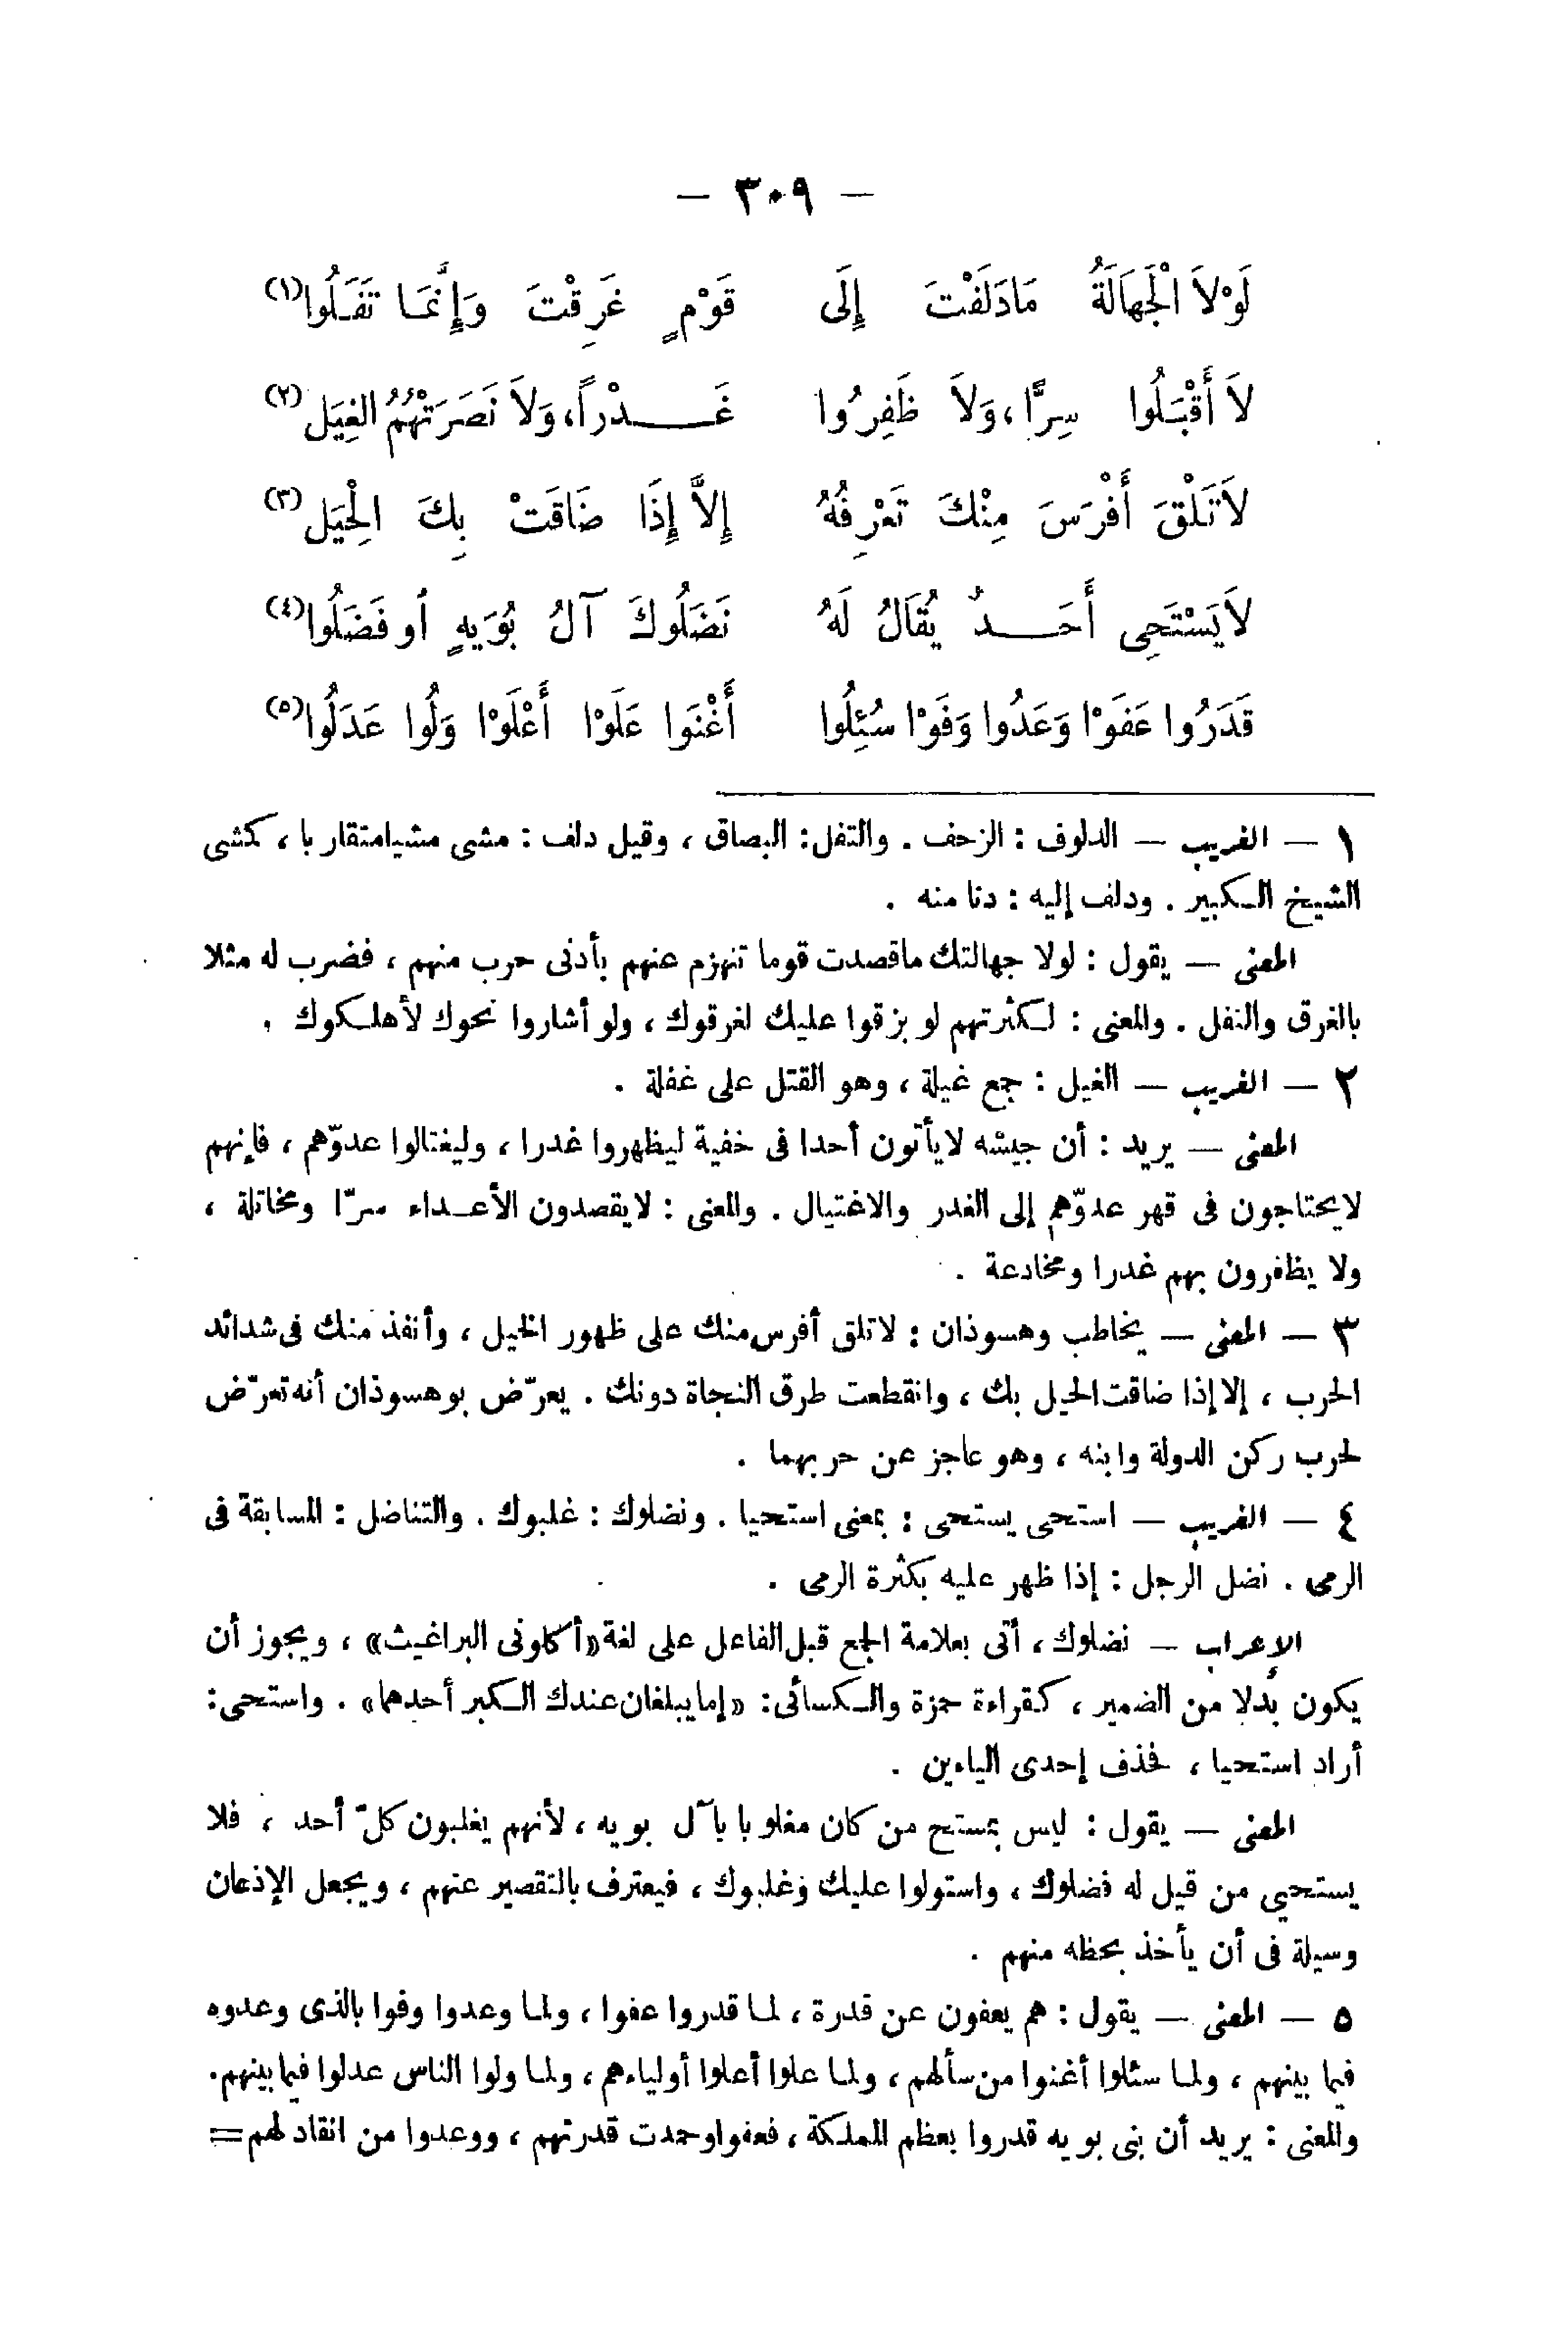 — ٣٠٩ —
لَوْلاَ الْجَهَالَةُ مَادَلَفْتَ إِلَى قَوْمٍ غَرِقْتَ وَإِنَّمَا تَفَلُوا(١)
لاَ أَقْبَلُوا سِرًّا، وَلاَ ظَفِرُوا غَدْراً، وَلاَ نَصَرَتْهُمُ الغِيَل(٢)
لاَتَلْقَ أَفْرَسَ مِنْكَ تَعْرِفُهُ إِلاَّ إِذَا ضَاقَتْ بِكَ الْحِيَل(٣)
لاَيَسْتَحِى أَحَدٌ يُقَالُ لَهُ نَضَلُوكَ آلُ بُوَيهٍ أو فَضَلُوا(٤)
قَدَرُوا عَفَوْا وَعَدُوا وَفَوْا سُئِلُوا أَغْنَوا عَلَوْا أَعْلَوْا وَلُوا عَدَلُوا(٥)
١ — الغريب — الدلوف : الزحف . والتفل: البصاق ، وقيل دلف : مشى مشيامتقاربا ، كمشى
الشيخ الكبير . ودلف إليه : دنا منه .
المعنى — يقول : لولا جهالتك ماقصدت قوما تنهزم عنهم بأدنى حرب منهم ، فضرب له مثلا
بالغرق والتفل . والمعنى : لكثرتهم لو بزقوا عليك لغرقوك ، ولو أشاروا نحوك لأهلكوك .
٢ — الغريب — الغيل : جمع غيلة ، وهو القتل على غفلة .
المعنى — يريد : أن جيشه لايأتون أحدا فى خفية ليظهروا غدرا ، وليغتالوا عدوّهم ، فإنهم
لايحتاجون فى قهر عدوّهم إلى الغدر والاغتيال . والمعنى : لايقصدون الأعداء سرّا ومخاتلة ،
ولا يظفرون بهم غدرا ومخادعة .
٣ — المعنى — يخاطب وهسوذان : لاتلق أفرس منك على ظهور الخيل ، وأنفذ منك فى شدائد
الحرب ، إلا إذا ضاقت الحيل بك ، وانقطعت طرق النجاة دونك . يعرّض بوهسوذان أنه تعرّض
لحرب ركن الدولة وابنه ، وهو عاجز عن حربهما .
٤ — الغريب — استحى يستحى : بمعنى استحيا . ونضلوك : غلبوك . والتناضل : المسابقة فى
الرمى . نضل الرجل : إذا ظهر عليه بكثرة الرمى .
الإعراب — نضلوك ، أتى بعلامة الجمع قبل الفاعل على لغة «أكلونى البراغيث» ، ويجوز أن
يكون بدلا من الضمير ، كقراءة حمزة والكسائى: «إما يبلغان عندك الكبر أحدهما» . واستحى:
أراد استحيا ، فحذف إحدى الياءين .
المعنى — يقول : ليس بمستح من كان مغلوبا بآل بويه ، لأنهم يغلبون كلّ أحد ، فلا
يستحيى من قيل له فضلوك ، واستولوا عليك وغلبوك ، فيعترف بالتقصير عنهم ، ويجعل الإذعان
وسيلة فى أن يأخذ بحظه منهم .
٥ — المعنى — يقول : هم يعفون عن قدرة ، لما قدروا عفوا ، ولما وعدوا وفوا بالذى وعدوه
فيما بينهم ، ولما سئلوا أغنوا من سألهم ، ولما علوا أعلوا أولياءهم ، ولما ولوا الناس عدلوا فيما بينهم.
والمعنى : يريد أن بنى بويه قدروا بعظم المملكة ، فعفوا وحمدت قدرتهم ، ووعدوا من انقاد لهم=